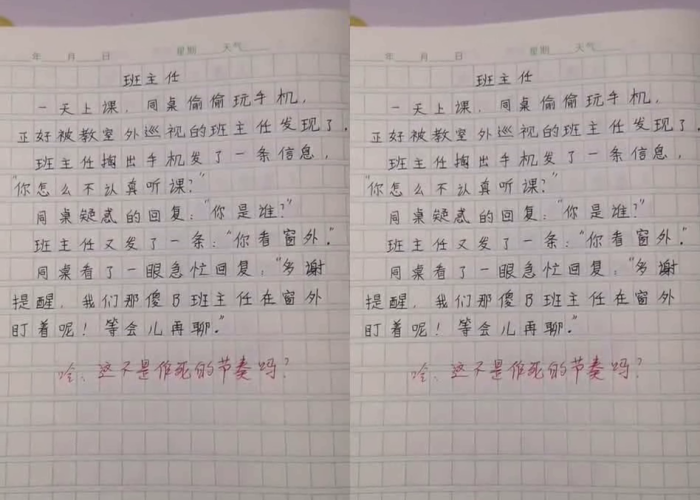 年 月 日 星期 天气
班主任
一天上课，同桌偷偷玩手机，
正好被教室外巡视的班主任发现了.
班主任掏出手机发了一条信息，
“你怎么不认真听课?”
同桌疑惑的回复：“你是谁?”
班主任又发了一条：“你看窗外.”
同桌看了一眼急忙回复：“多谢
提醒，我们那傻B班主任在窗外
盯着呢！等会儿再聊.”
哈、这不是作死的节奏吗?
年 月 日 星期 天气
班主任
一天上课，同桌偷偷玩手机，
正好被教室外巡视的班主任发现了.
班主任掏出手机发了一条信息，
“你怎么不认真听课?”
同桌疑惑的回复：“你是谁?”
班主任又发了一条：“你看窗外.”
同桌看了一眼急忙回复：“多谢
提醒，我们那傻B班主任在窗外
盯着呢！等会儿再聊.”
哈、这不是作死的节奏吗?